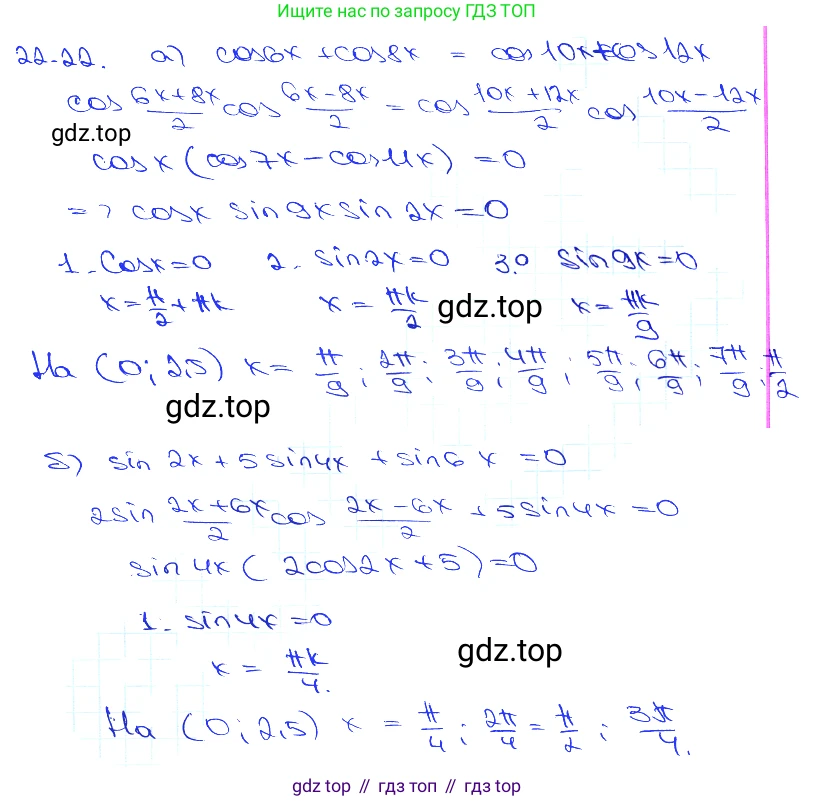 Ищите нас по запросу ГДЗ ТОП
22.22. а) cos6x + cos8x = cos10x + cos12x
cos (6x+8x)/2 cos (6x-8x)/2 = cos (10x+12x)/2 cos (10x-12x)/2
gdz.top
cosx (cos7x - cos11x) = 0
=> cosx sin9x sin2x = 0
1. cosx=0 2. sin2x=0 3. sin9x=0
x = π/2 + πk x = πk/2 gdz.top x = πk/9
На (0; 2,5) x = π/9; 2π/9; 3π/9; 4π/9; 5π/9; 6π/9; 7π/9; π/2
gdz.top
б) sin 2x + 5 sin4x + sin6x = 0
2sin (2x+6x)/2 cos (2x-6x)/2 + 5sin4x = 0
sin4x (2cos2x + 5) = 0
1. sin4x = 0
gdz.top
x = πk/4.
На (0; 2,5) x = π/4; 2π/4 = π/2; 3π/4.
gdz top // гдз топ // gdz.top